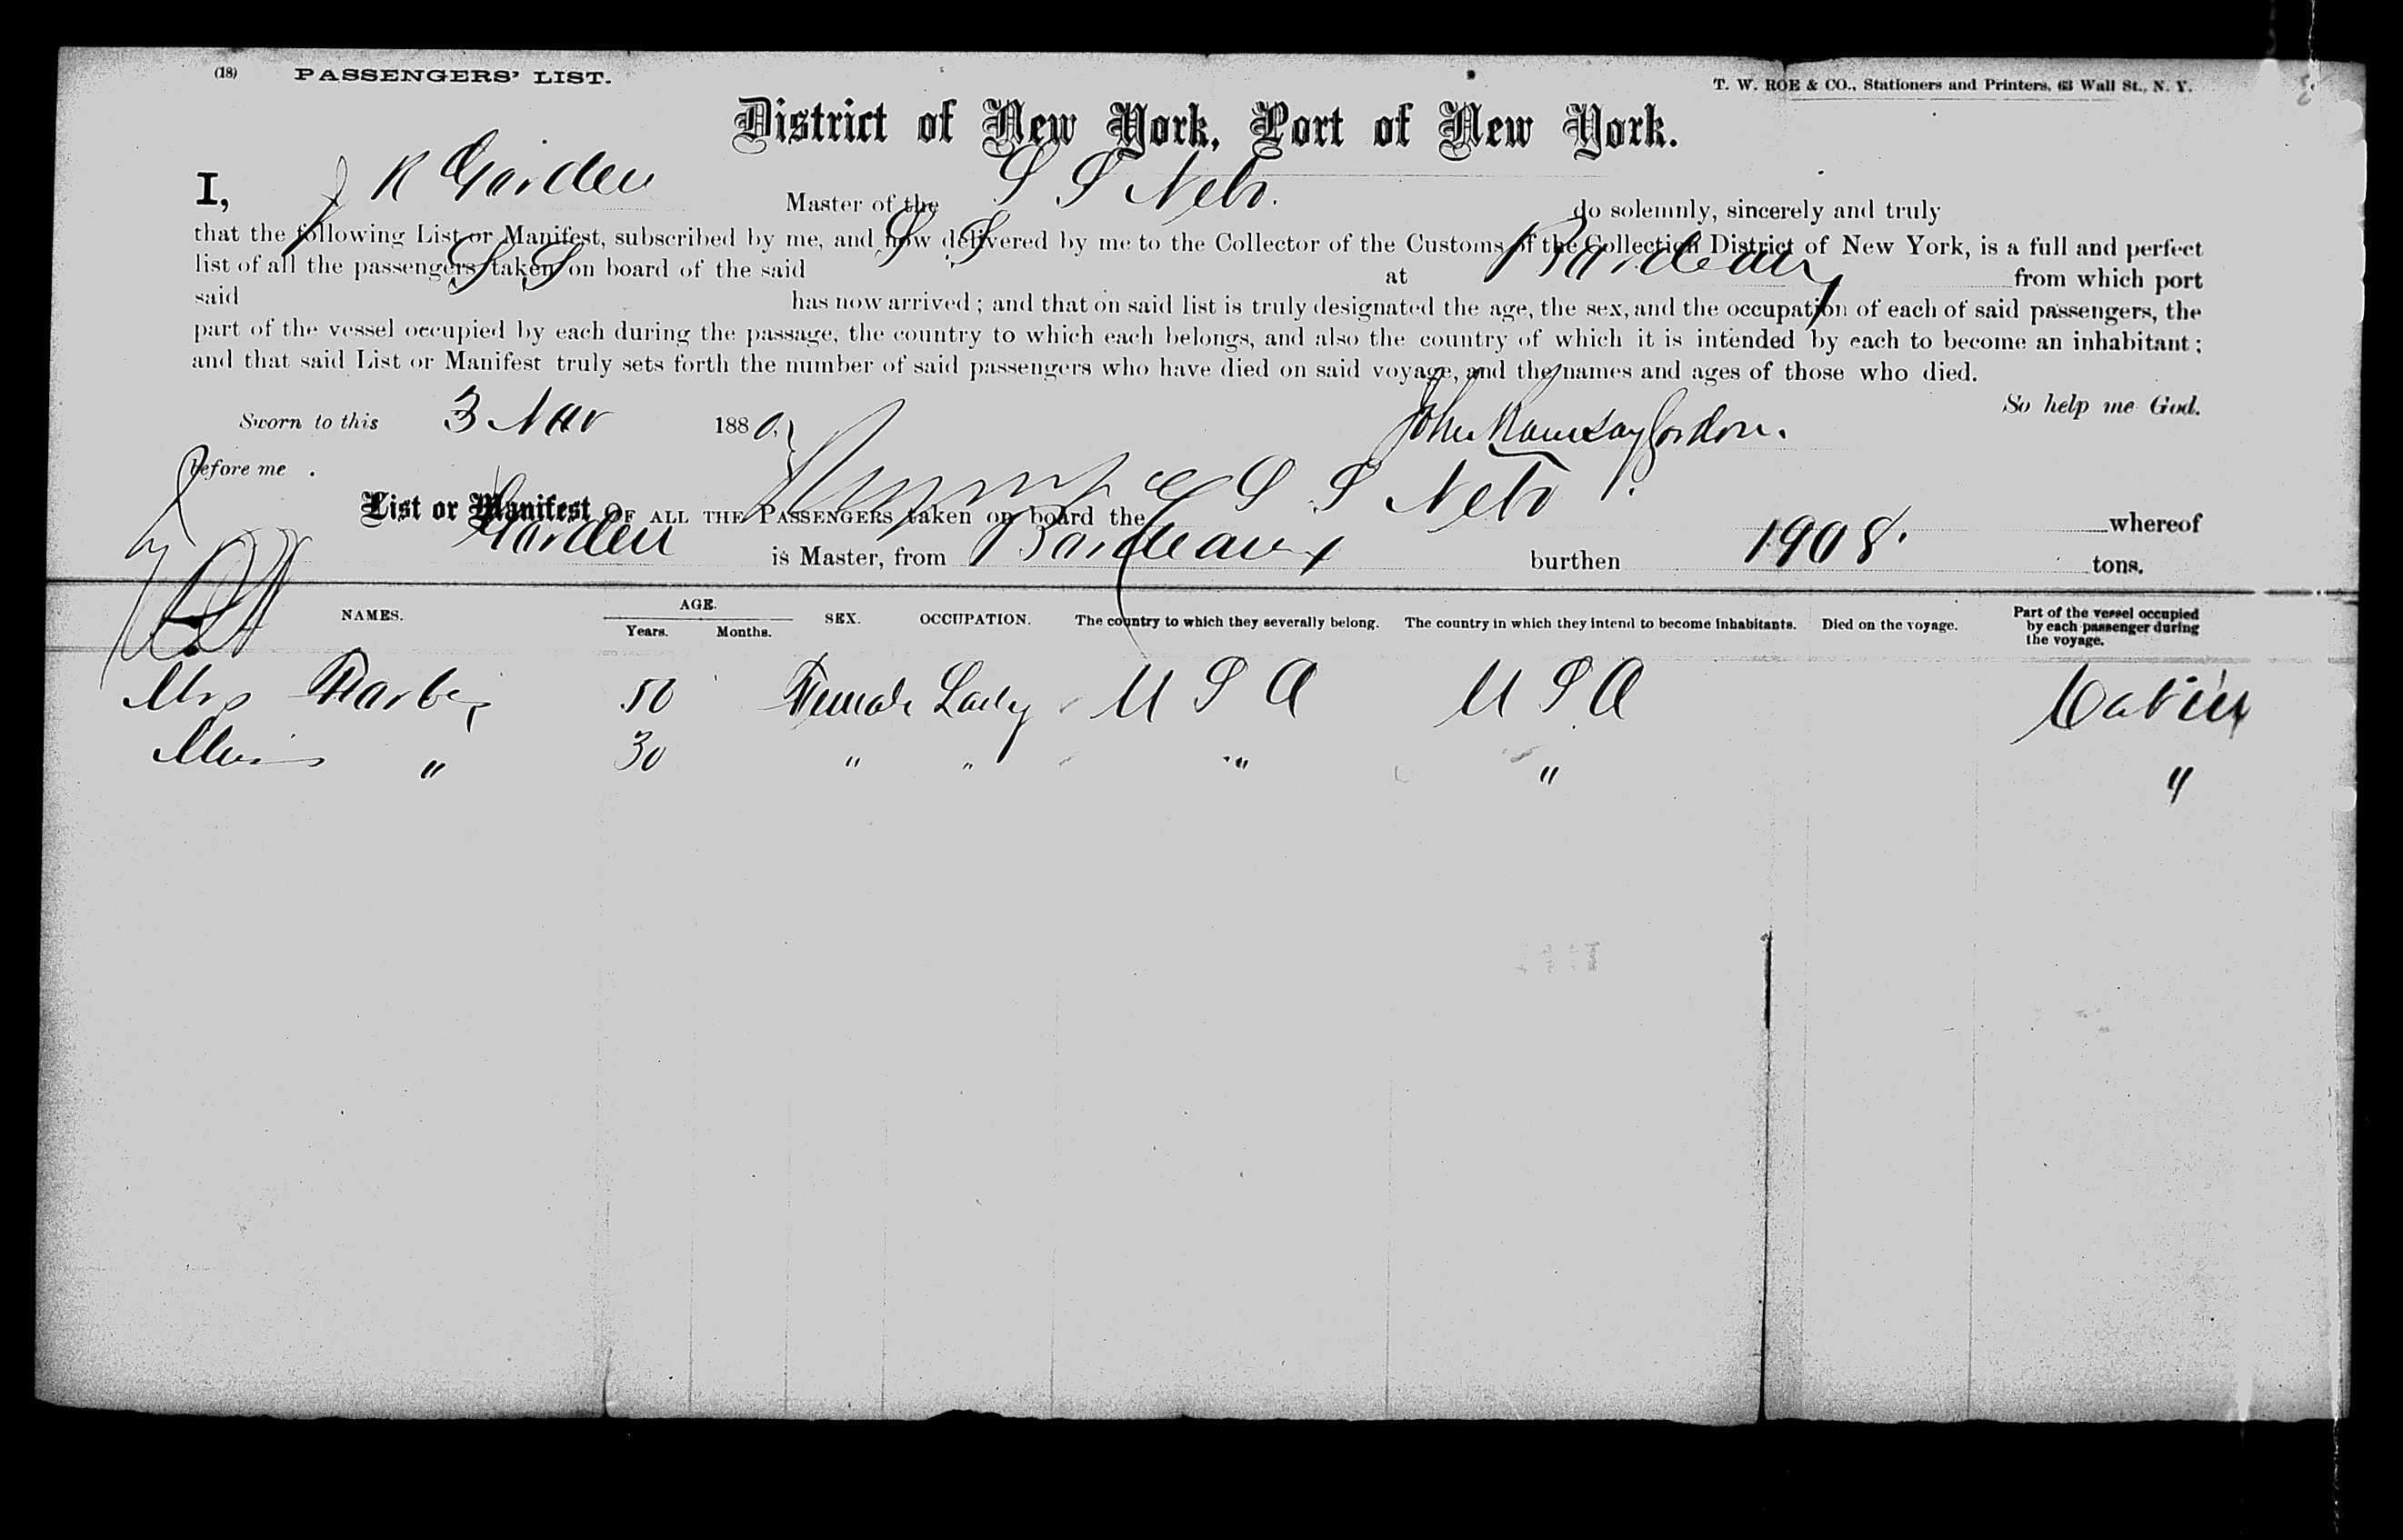 (18) PASSENGERS' LIST. T. W. ROE & CO., Stationers and Printers, 63 Wall St., N. Y.
District of New York, Port of New York.
I, J R Gorden Master of the S S Nebo. do solemnly, sincerely and truly
that the following List or Manifest, subscribed by me, and now delivered by me to the Collector of the Customs of the Collection District of New York, is a full and perfect
list of all the passengers taken on board of the said S S at Bordeaux from which port
said S S has now arrived; and that on said list is truly designated the age, the sex, and the occupation of each of said passengers, the
part of the vessel occupied by each during the passage, the country to which each belongs, and also the country of which it is intended by each to become an inhabitant;
and that said List or Manifest truly sets forth the number of said passengers who have died on said voyage, and the names and ages of those who died.
So help me God.
Sworn to this 3 Nov 1880, John Ramsay Gordon.
before me
List or Manifest OF ALL THE PASSENGERS taken on board the S S Nebo whereof
Gorden is Master, from Bordeaux burthen 1908. tons.
NAMES. AGE. Years. Months. SEX. OCCUPATION. The country to which they severally belong. The country in which they intend to become inhabitants. Died on the voyage. Part of the vessel occupied by each passenger during the voyage.
Mrs 50 Female Lady U S A U S A Cabin
Miss " 30 " " " " "